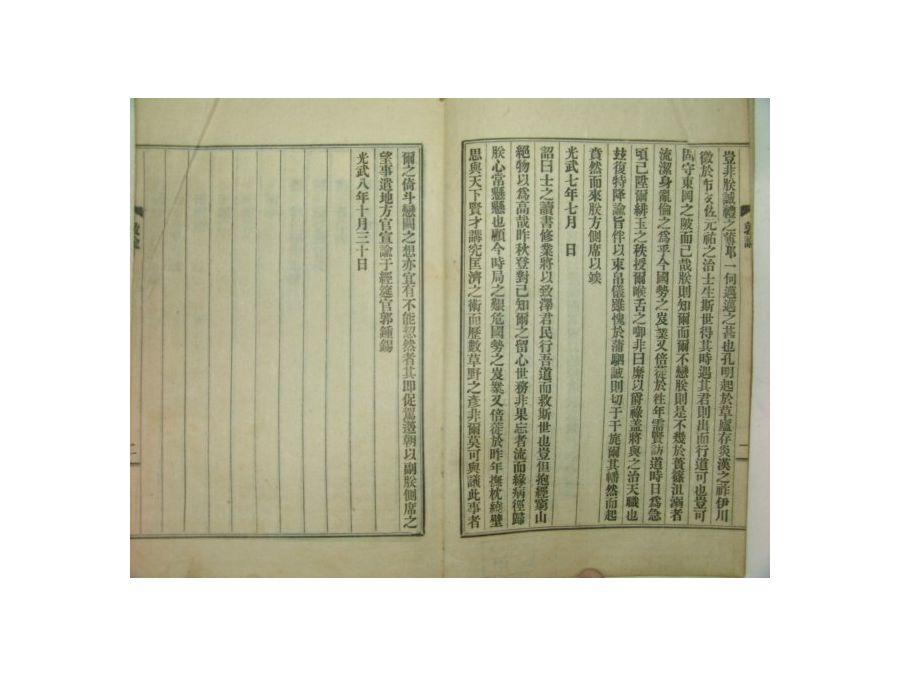 豈非朕誠禮之薄耶一何邁邁之甚也孔明起於草廬存炎漢之祚伊川
徵於佐元祐之治士生斯世得其時遇其君則出而行道可也豈可
固守東岡之陂而已哉朕則知爾而爾不戀朕則是不幾於蕢篠沮溺者
流潔身亂倫之爲乎今國勢之岌業又倍蓰於徃年需賢訪道時日爲急
頃已陞爾緋玉之秩授爾喉舌之啣非曰縻以爵祿盖將與之治天職也
玆復特降諭旨伴以束帛儀雖愧於蒲駟誠則切于干旄爾其幡然而起
賁然而來朕方側席以竢
光武七年七月 日
詔曰士之讀書修業將以致澤君民行吾道而救斯世也豈但抱經窮山
絕物以爲高哉昨秋登對已知爾之留心世務非果忘者流而緣病徑歸
朕心當懸懸也顧今時局之艱危國勢之岌業又倍蓰於昨年撫枕繞壁
思與天下賢才講究匡濟之術而歷數草野之彥非爾莫可與議此事者
敦諭
一
爾之倚斗戀闕之想亦宜有不能恝然者其即促駕造朝以副朕側席之
望事遣地方官宣諭于經筵官郭鍾錫
光武八年十月三十日
敦諭
二